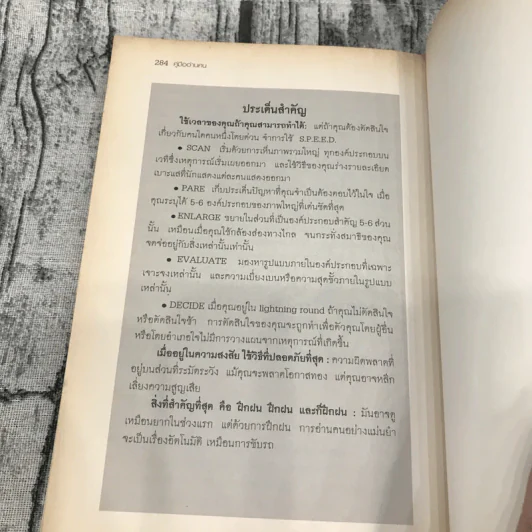 284 คู่มืออ่านคน
ประเด็นสำคัญ
ใช้เวลาของคุณถ้าคุณสามารถทำได้: แต่ถ้าคุณต้องตัดสินใจ
เกี่ยวกับคนใดคนหนึ่งโดยด่วน จำการใช้ S.P.E.E.D.
• SCAN เริ่มด้วยการเห็นภาพรวมใหญ่ ทุกองค์ประกอบบน
เวทีซึ่งเหตุการณ์เริ่มเผยออกมา และใช้วิธีของคุณร่างรายละเอียด
เบาะแสที่นักแสดงแต่ละคนแสดงออกมา
• PARE เก็บประเด็นปัญหาที่คุณจำเป็นต้องตอบไว้ในใจ เมื่อ
คุณระบุได้ 5-6 องค์ประกอบของภาพใหญ่ที่เด่นชัดที่สุด
• ENLARGE ขยายในส่วนที่เป็นองค์ประกอบสำคัญ 5-6 ส่วน
นั้น เหมือนเมื่อคุณใช้กล้องส่องทางไกล จนกระทั่งสมาธิของคุณ
จดจ่ออยู่กับสิ่งเหล่านั้นเท่านั้น
• EVALUATE มองหารูปแบบภายในองค์ประกอบที่เฉพาะ
เจาะจงเหล่านั้น และความเบี่ยงเบนหรือความสุดขั้วภายในรูปแบบ
เหล่านั้น
• DECIDE เมื่อคุณอยู่ใน lightning round ถ้าคุณไม่ตัดสินใจ
หรือตัดสินใจช้า การตัดสินใจของคุณจะถูกทำเพื่อตัวคุณโดยผู้อื่น
หรือโดยอำเภอใจไม่มีการวางแผนจากเหตุการณ์ที่เกิดขึ้น
เมื่ออยู่ในความสงสัย ใช้วิธีที่ปลอดภัยที่สุด : ความผิดพลาดที่
อยู่บนส่วนที่ระมัดระวัง แม้คุณจะพลาดโอกาสทอง แต่คุณอาจหลีก
เลี่ยงความสูญเสีย
สิ่งที่สำคัญที่สุด คือ ฝึกฝน ฝึกฝน และก็ฝึกฝน : มันอาจดู
เหมือนยากในช่วงแรก แต่ด้วยการฝึกฝน การอ่านคนอย่างแม่นยำ
จะเป็นเรื่องอัตโนมัติ เหมือนการขับรถ